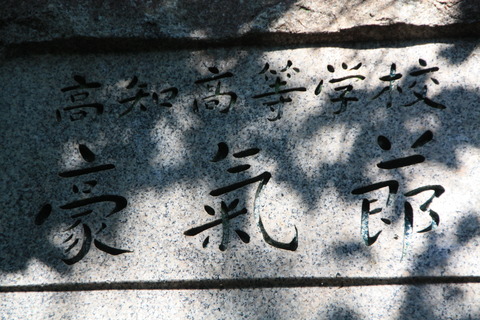 高知高等学校
豪氣節